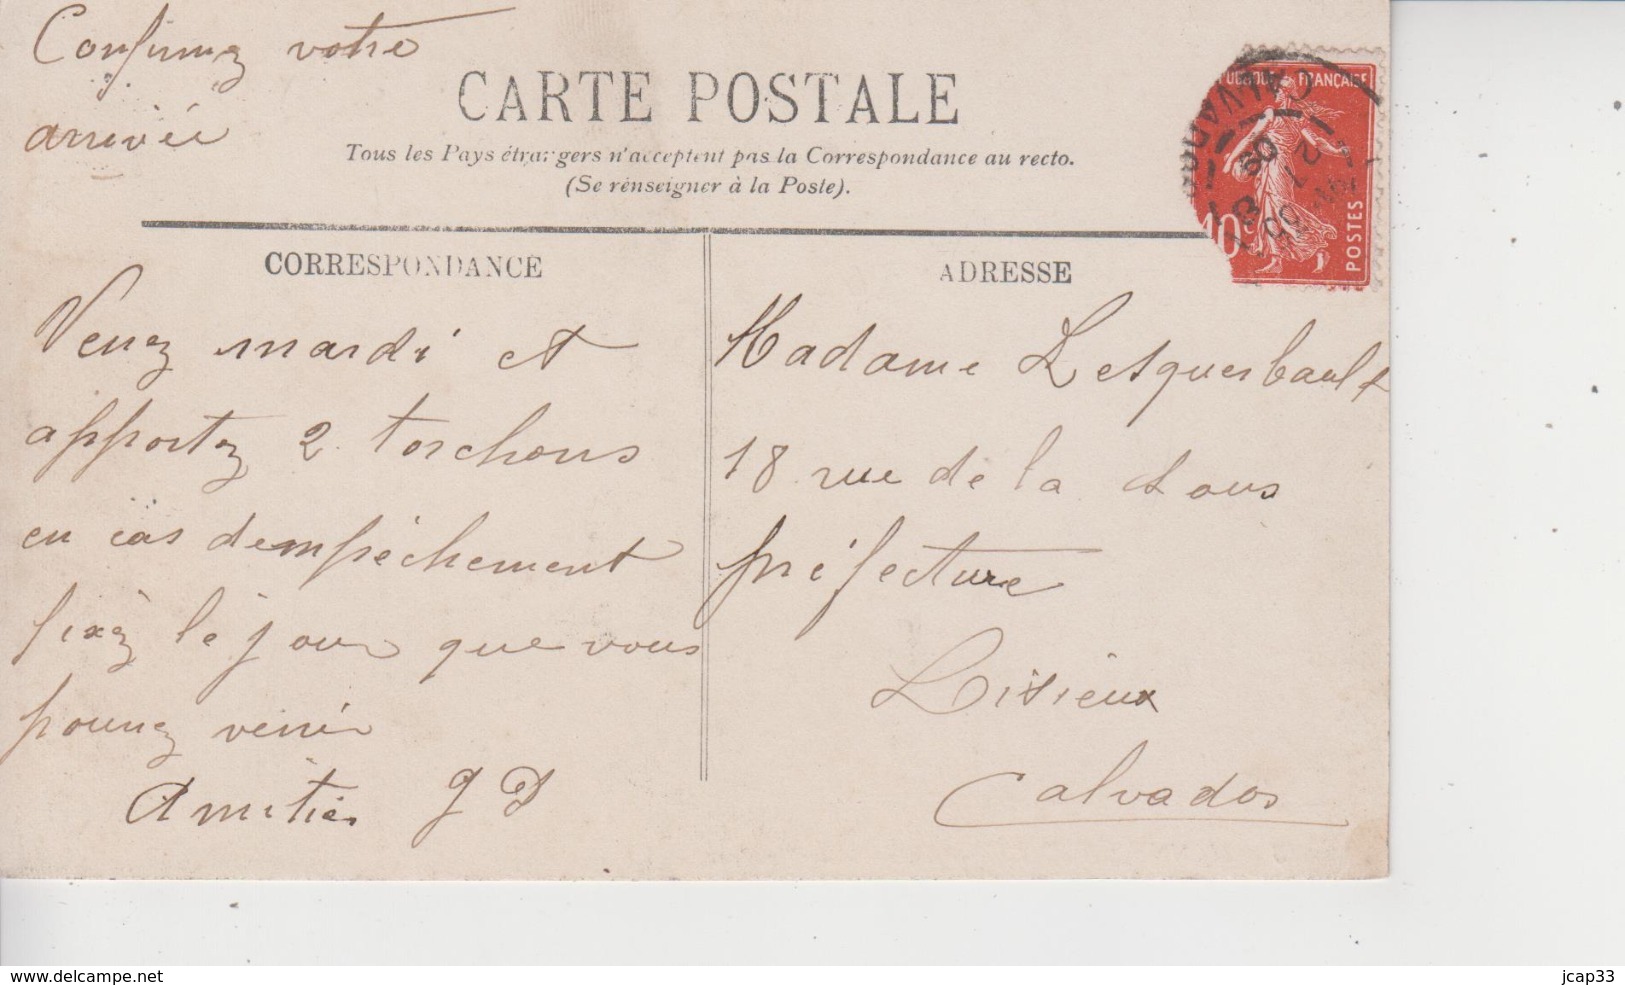 Confirmez votre
arrivée
CARTE POSTALE
Tous les Pays étrangers n'acceptent pas la Correspondance au recto.
(Se renseigner à la Poste).
RÉPUBLIQUE FRANÇAISE
CALVADOS
09
10c
POSTES
CORRESPONDANCE
ADRESSE
Venez mardi et
apportez 2 torchons
en cas dempêchement
fixez le jour que vous
pouvez venir
Amitiés J D
Madame Lesquerbault
18 rue de la sous
préfecture
Lisieux
Calvados
www.delcampe.net
jcap33